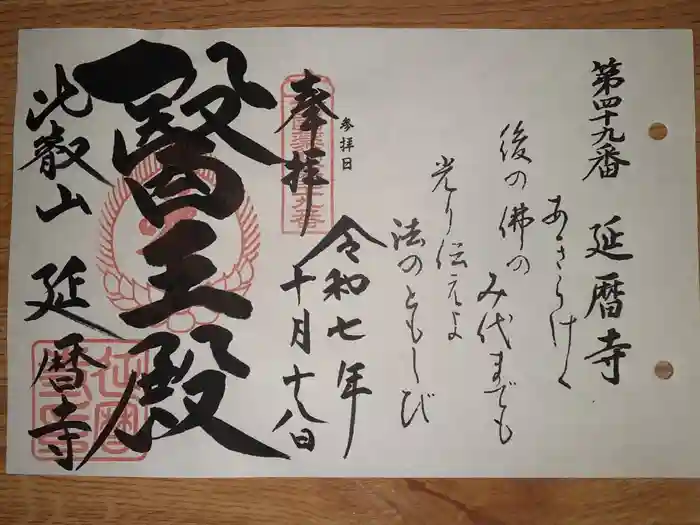 第四十九番 延暦寺
あきらけく
後の佛の
み代までも
光り伝えよ
法のともしび
参拝日
令和七年
十月十八日
奉拝
醫王殿
比叡山 延暦寺